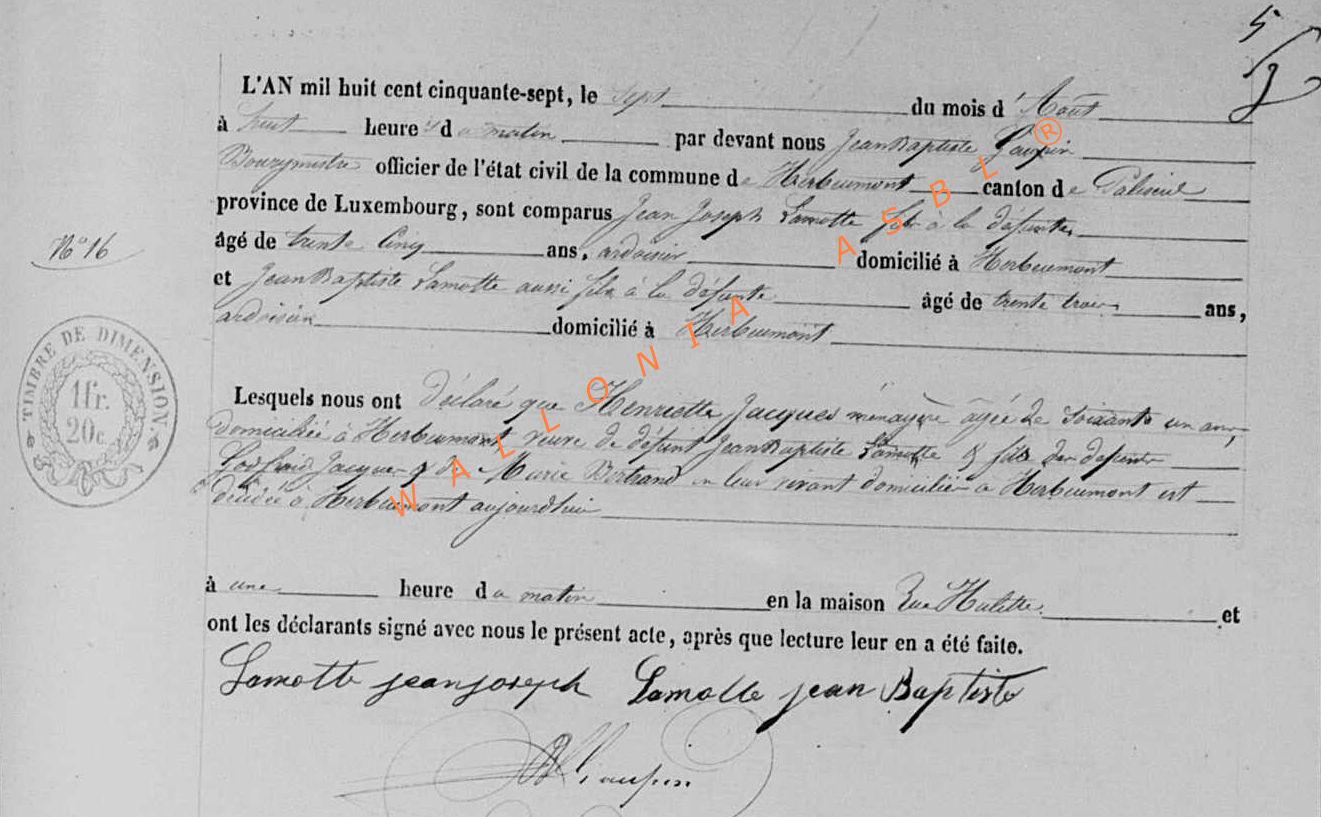 5
L'AN mil huit cent cinquante-sept, le sept du mois d'Aout
à huit heures du matin par devant nous Jean Baptiste
Bourgmestre officier de l'état civil de la commune de Herbeumont canton de Paliseul
province de Luxembourg, sont comparus Jean Joseph Lamotte fils à la défunte
N° 16
âgé de trente cinq ans, ardoisier domicilié à Herbeumont
et Jean Baptiste Lamotte aussi fils à la défunte âgé de trente trois ans,
ardoisier domicilié à Herbeumont
TIMBRE DE DIMENSION.
1 fr.
20 c.
Lesquels nous ont déclaré que Henriette Jacques ménagère agée de soixante un ans,
domiciliée à Herbeumont veuve de défunt Jean Baptiste Lamotte & fille des défunts
Jacques & de Marie Bertrand en leur vivant domiciliés à Herbeumont est
décédée à Herbeumont aujourdhui
à une heure du matin en la maison Rue Hulette et
ont les déclarants signé avec nous le présent acte, après que lecture leur en a été faite.
Lamotte jean joseph Lamotte jean Baptiste
WALLONIA ASBL ®